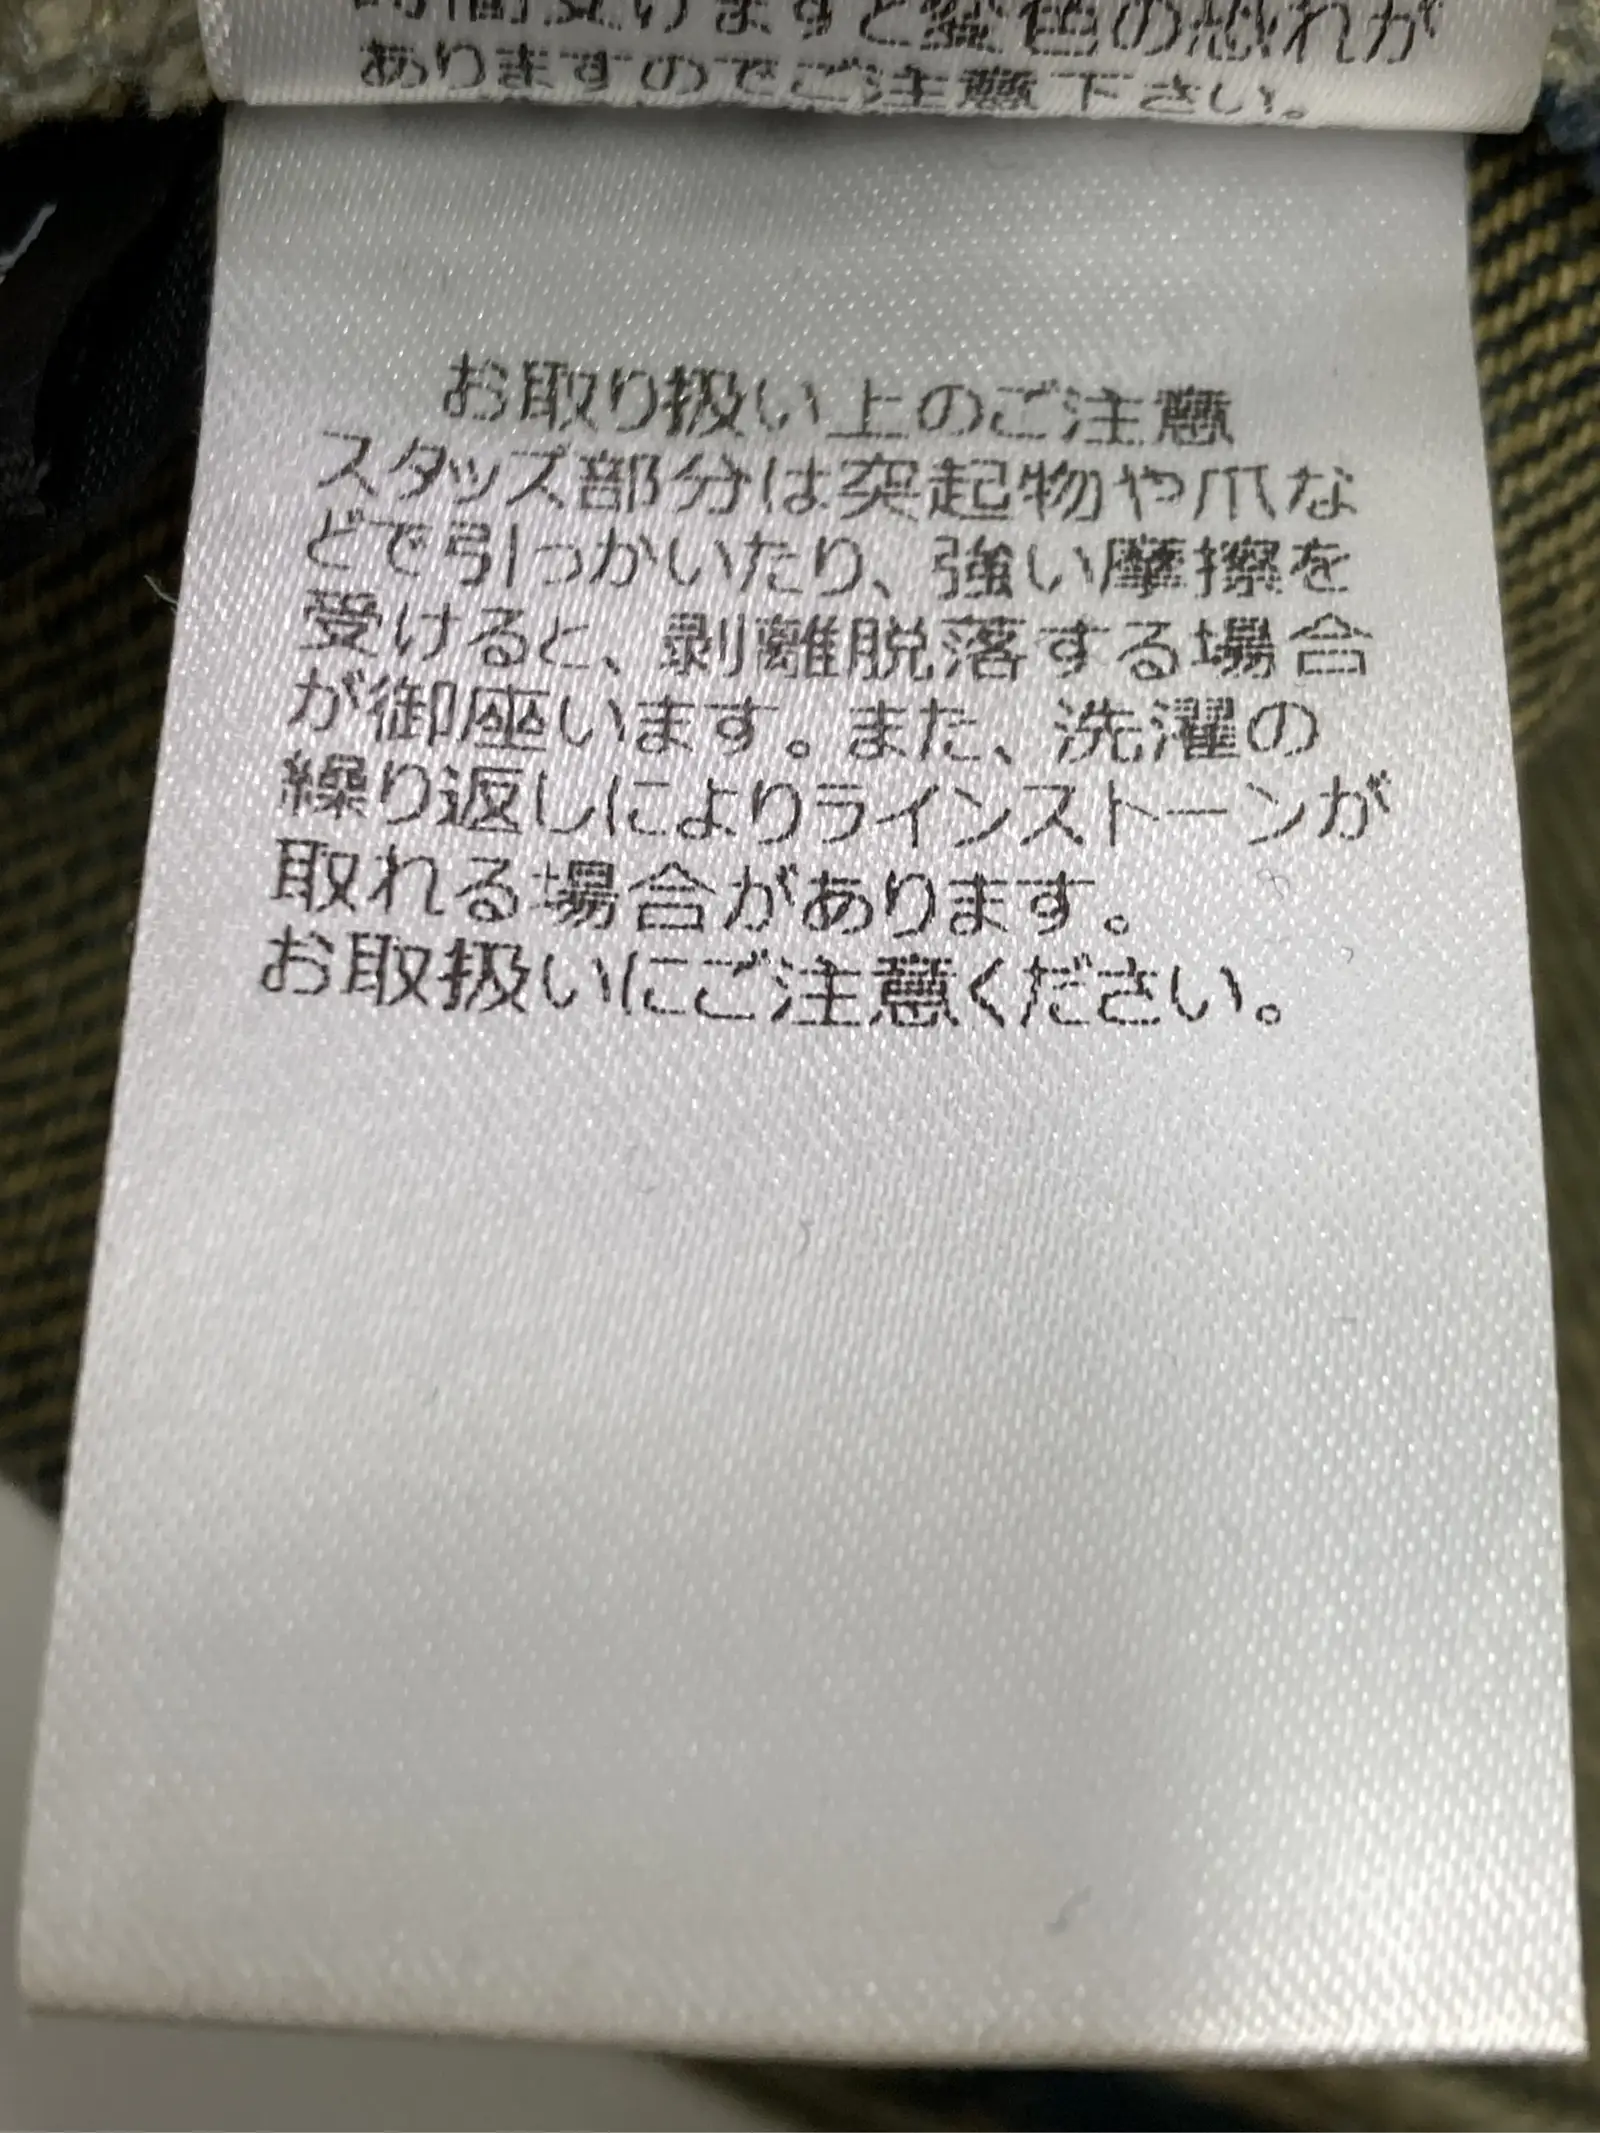 時間受けますと変色の恐れが
ありますのでご注意下さい。
お取り扱い上のご注意
スタッズ部分は突起物や爪な
どで引っかいたり、強い摩擦を
受けると、剥離脱落する場合
が御座います。また、洗濯の
繰り返しによりラインストーンが
取れる場合があります。
お取扱いにご注意ください。